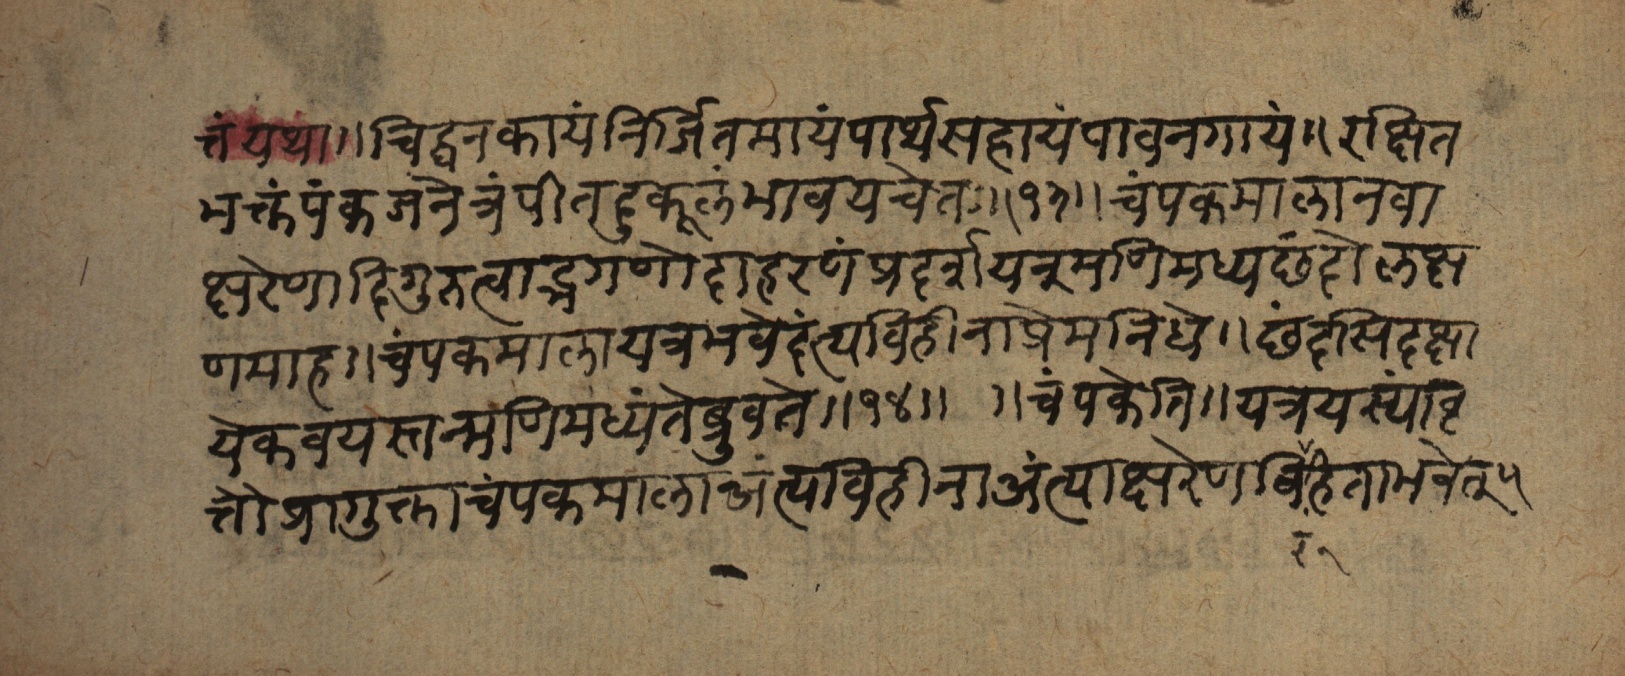 त्तं यथा ॥ चिद्घनकायं निर्जितमायं पार्थसहायं पावनगायं ॥ रक्षित
भक्तं पंकजनेत्रं पीतदुकूलं भावय चेतः ॥ १३ ॥ चंपकमालानवा
क्षरेणादिगुरुत्वाद्भगणोदाहरणं प्रदर्शयन्मणिमध्यछंदोलक्ष
णमाह ॥ चंपकमाला यत्र भवेदंत्यविहीना प्रेमनिधे ॥ छंदसि दक्षा
ये कवयस्तन्मणिमध्यं ते ब्रुवते ॥ १४ ॥ ॥ चंपकेति ॥ यत्र यस्यां वृ
त्तौ प्रागुक्ता चंपकमाला अंत्यविहीना अंत्याक्षरेण विरहिता भवेत् ५
र १